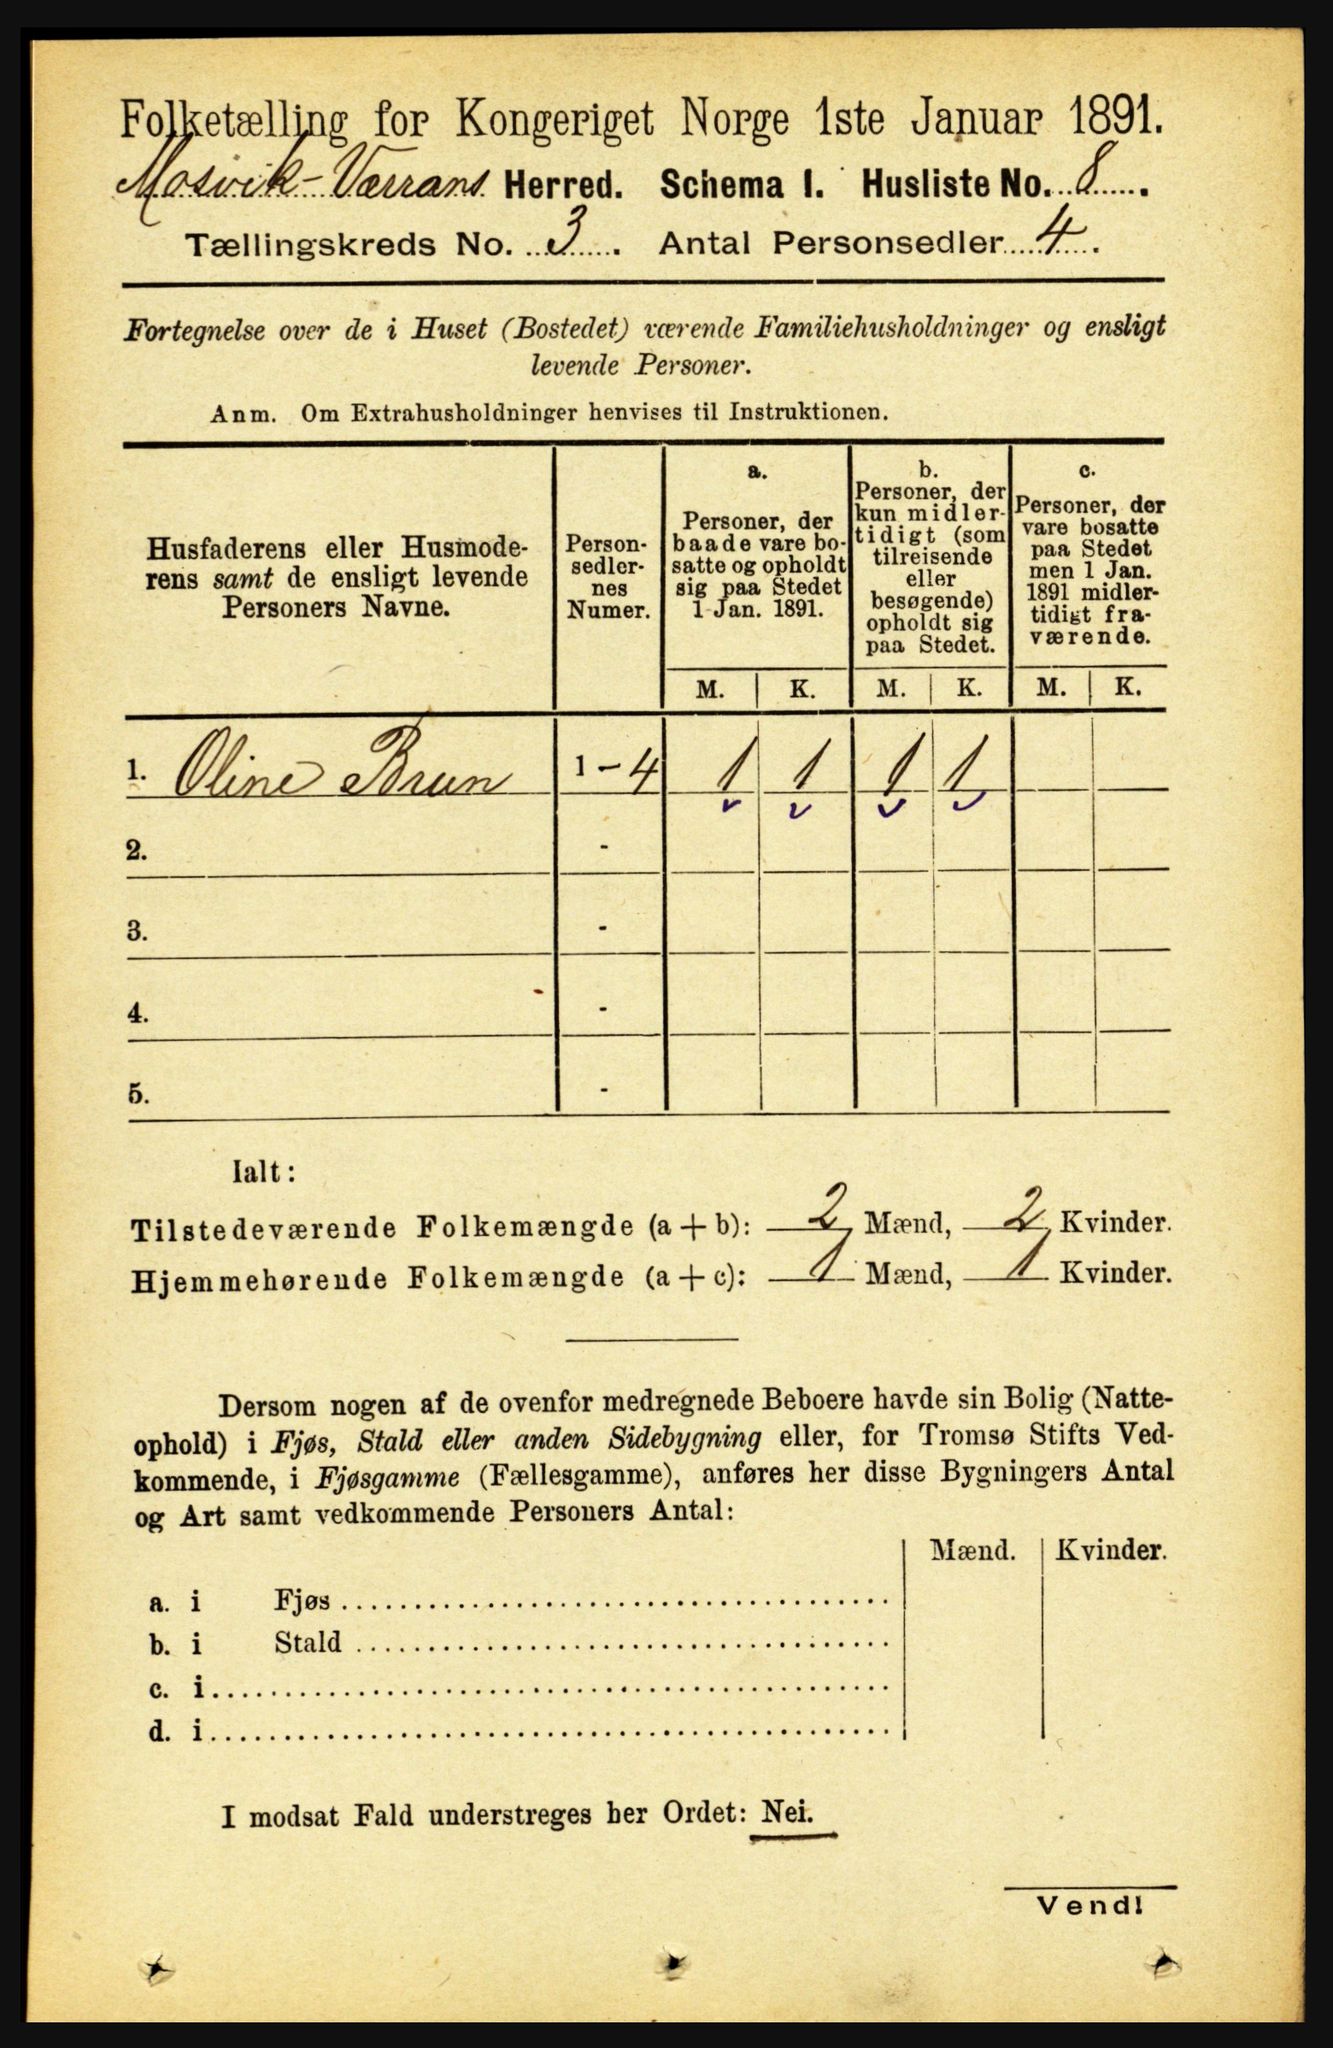 Folketælling for Kongeriget Norge 1ste Januar 1891.
Mosvik-Værrans Herred. Schema I. Husliste No. 8.
Tællingskreds No. 3. Antal Personsedler 4.
Fortegnelse over de i Huset (Bostedet) værende Familiehusholdninger og ensligt
levende Personer.
Anm. Om Extrahusholdninger henvises til Instruktionen.
Husfaderens eller Husmode-
rens samt de ensligt levende
Personers Navne.
Person-
sedler-
nes
Numer.
a.
Personer, der
baade vare bo-
satte og opholdt
sig paa Stedet
1 Jan. 1891.
b.
Personer, der
kun midler-
tidigt (som
tilreisende
eller
besøgende)
opholdt sig
paa Stedet.
c.
Personer, der
vare bosatte
paa Stedet
men 1 Jan.
1891 midler-
tidigt fra-
værende.
M. K. M. K. M. K.
1. Oline Brun 1-4 1 1 1 1
2. -
3. -
4. -
5. -
Ialt:
Tilstedeværende Folkemængde (a + b): 2 Mænd, 2 Kvinder.
Hjemmehørende Folkemængde (a + c): 1 Mænd, 1 Kvinder.
Dersom nogen af de ovenfor medregnede Beboere havde sin Bolig (Natte-
ophold) i Fjøs, Stald eller anden Sidebygning eller, for Tromsø Stifts Ved-
kommende, i Fjøsgamme (Fællesgamme), anføres her disse Bygningers Antal
og Art samt vedkommende Personers Antal:
Mænd. Kvinder.
a. i Fjøs
b. i Stald
c. i
d. i
I modsat Fald understreges her Ordet: Nei.
Vend!